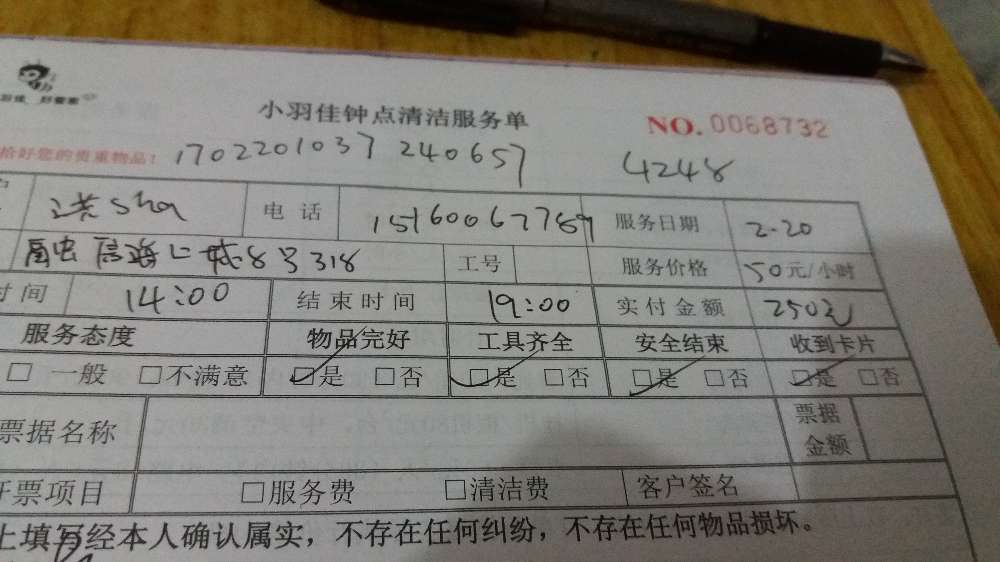 小羽佳钟点清洁服务单 NO.0068732
恰好您的贵重物品! 1702201037 240657 4248
洪sha 电话 15160067789 服务日期 2-20
信海上城8号318 工号 服务价格 50元/小时
时间 14:00 结束时间 19:00 实付金额 250元
服务态度 物品完好 工具齐全 安全结束 收到卡片
□一般 □不满意 □是 □否 □是 □否 □是 □否 □是 □否
票据名称 票据金额
开票项目 □服务费 □清洁费 客户签名
上填写经本人确认属实，不存在任何纠纷，不存在任何物品损坏。